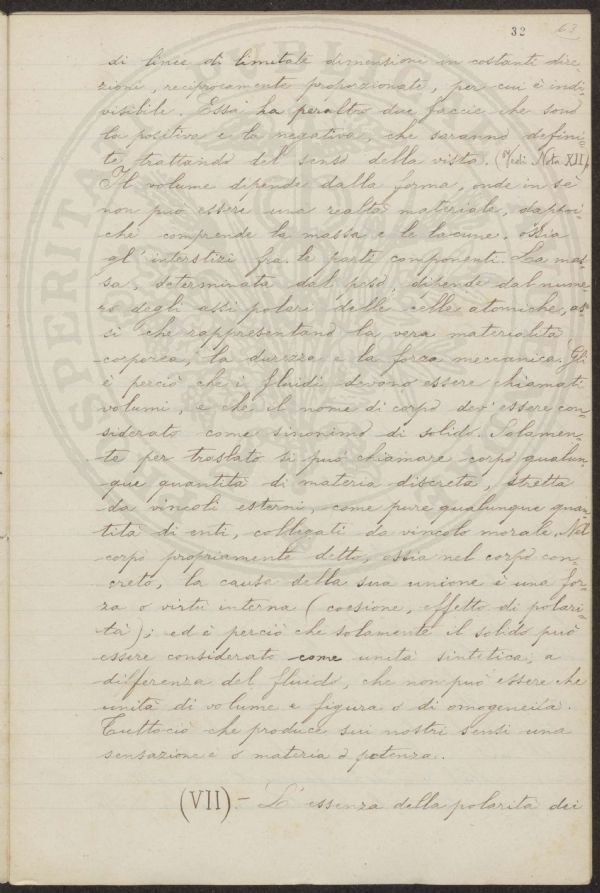 32 63
di linee di limitate dimensioni in costanti dire
zioni, reciprocamente proporzionate, per cui è indi-
visibile. Essa ha peraltro due faccie che sono
la positiva e la negativa, che saranno defini-
te trattando del senso della vista. (Vedi Nota XII)
Il volume dipende dalla forma, onde in sè
non può essere una realtà materiale, dappoi-
chè comprende la massa e le lacune, ossia
gl'interstizi fra le parti componenti. La mas-
sa, determinata dal peso, dipende dal nume
ro degli assi polari delle celle atomiche, as-
si che rappresentano la vera materialità
corporea, la durezza e la forza meccanica. Gli
è perciò che i fluidi devono essere chiamati
volumi, e che il nome di corpo dev'essere con-
siderato come sinonimo di solido. Solamen-
te per traslato si può chiamare corpo qualun-
que quantità di materia discreta, stretta
da vincoli esterni, come pure qualunque quan
tità di enti, collegati da vincolo morale. Nel
corpo propriamente detto, ossia nel corpo con-
creto, la causa della sua unione è una for-
za o virtù interna (coesione, effetto di polari-
tà); ed è perciò che solamente il solido può
essere considerato come unità sintetica, a
differenza del fluido, che non può essere che
unità di volume e figura o di omogeneità.
Tuttociò che produce sui nostri sensi una
sensazione è o materia o potenza.
(VII) - L'essenza della polarità dei